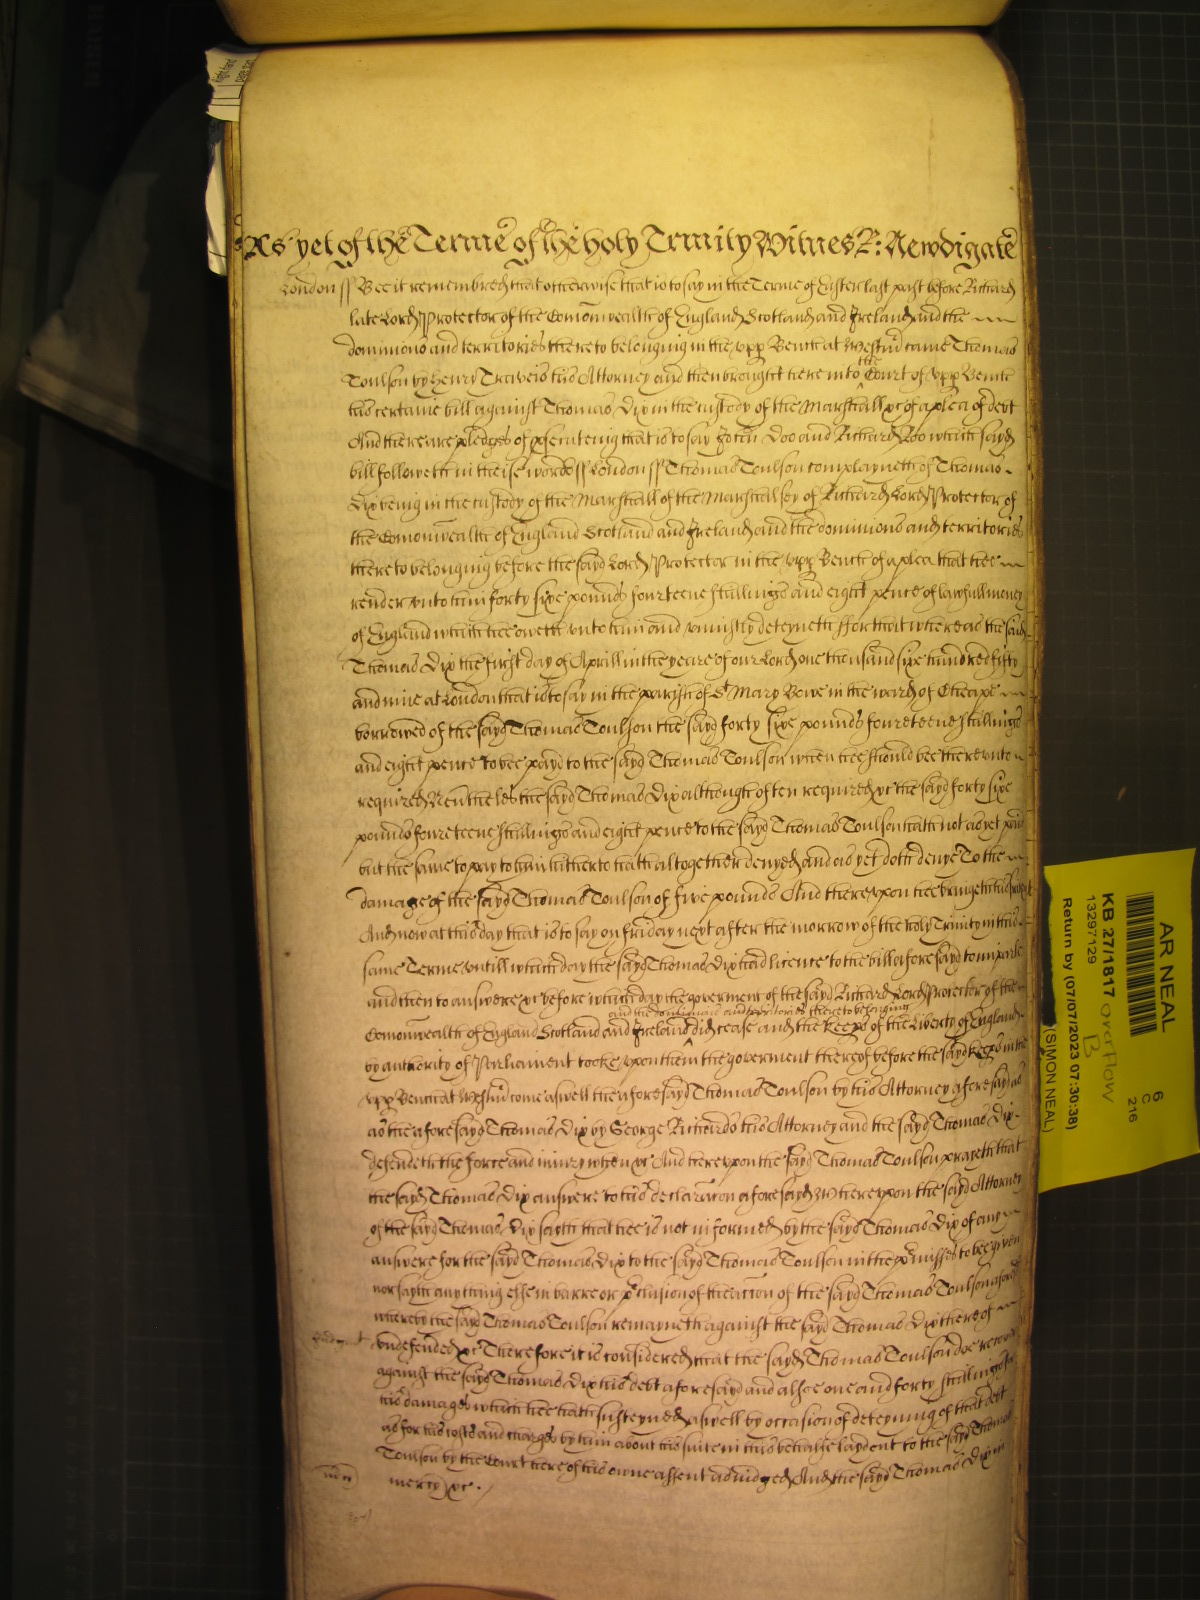 As yet of the Terme of the holy Trinity Witnes R: Newdigate
London ss Bee it remembred that otherwise that is to say in the Terme of Easter last past before Richard
late Lord Protector of the Comonwealth of England Scotland and Ireland and the
dominions and territories thereto belonging in the upp Bench at Westm̃ came Thomas
Toulson by Henry Traveis his Attorney and then brought here into the Court of upp Bench
his certaine bill against Thomas Dix in the custody of the Marshall &c of a plea of debt
And there are pledges of psecuteing that is to say John Doo and Richard Roo which sayd
bill followeth in theise words ss London ss Thomas Toulson complayneth of Thomas
Dix being in the custody of the Marshall of the Marshalsey of Richard Lord Protector of
the Comonwealth of England Scotland and Ireland and the dominions and territories
thereto belonging before the sayd Lord Protector in the upp Bench of a plea that hee
render unto him forty sixe pounds fourteene shillings and eight pence of lawfull money
of England which hee oweth unto him and uniustly deteyneth ffor that whereas the said
Thomas Dix the first day of Aprill in the yeare of our Lord one thousand sixe hundred fifty
and nine at London that is to say in the parish of St Mary Bowe in the ward of Cheape
borrowed of the sayd Thomas Toulson the sayd forty sixe pounds foureteene shillings
and eight pence to bee payd to the sayd Thomas Toulson when hee should bee thereunto
required Nevthelés the sayd Thomas Dix although often required &c the sayd forty sixe
pounds foureteene shillings and eight pence to the sayd Thomas Toulson hath not as yet paid
but the same to pay to him hitherto hath altogether denyed and as yet doth denye To the
damage of the sayd Thomas Toulson of five pounds And thereupon hee bringeth his suite &c
And now at this day that is to say on Friday next after the morrow of the holy Trinity in this
same Terme untill which day the sayd Thomas Dix had licence to the bill aforesayd to imparle
and then to answere &c before which day the goverment of the sayd Richard Lord Protector of the
and the dominions and territories thereto belonging
Comonwealth of England Scotland and Ireland did cease and the Keeps of the Liberty of England
by authority of Parliament tooke upon them the goverment thereof before the sayd Keeps in the
upp Bench at Westm̃ come aswell the aforesayd Thomas Toulson by his Attorney aforesayd
as the aforesayd Thomas Dix by George Richards his Attorney and the sayd Thomas Dix
defendeth the force and iniury when &c And hereupon the sayd Thomas Toulson prayeth that
the sayd Thomas Dix answere to his declaracon aforesayd Whereupon the sayd Attorney
of the sayd Thomas Dix sayth that hee is not informed by the sayd Thomas Dix of any
answere for the sayd Thomas Dix to the sayd Thomas Toulson in the pmisses to bee given
nor sayth any thing else in barre or pclusion of the accon of the sayd Thomas Toulson aforesd
whereby the sayd Thomas Toulson remayneth against the sayd Thomas Dix thereof
undefended &c Therefore it is considered that the sayd Thomas Toulson doe recover
against the sayd Thomas Dix his debt aforesayd and alsoe one and forty shillings for
his damages which hee hath susteyned aswell by occasion of deteyning of that debt
as for his costs and charges by him about his suite in this behalfe layd out to the sayd Thomas
Toulson by the Court here of his owne assent adiudged And the sayd Thomas Dix in
mercy &c
AR NEAL
KB 27/1817 overflow
B
13297129
Return by (07/07/2023 07:30:38)
(SIMON NEAL)
6
C
216